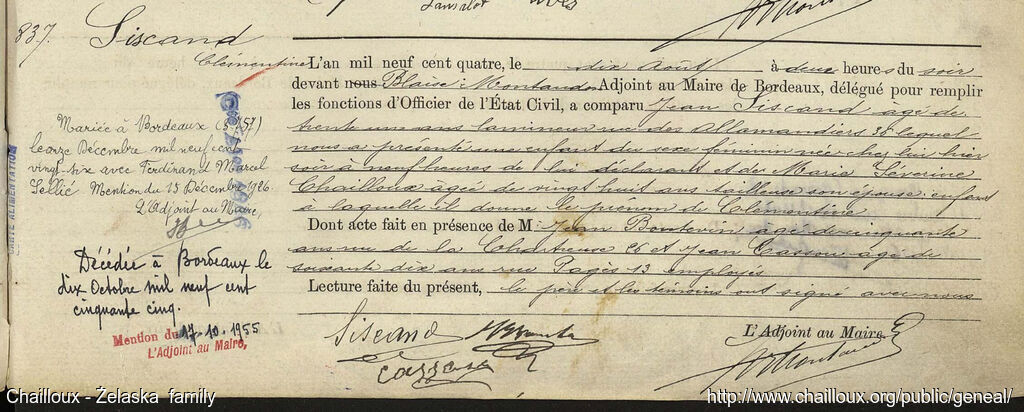 837.
Siscand
Clémentine
Mariée à Bordeaux (S. 757)
le onze Décembre mil neuf cent
vingt-six avec Ferdinand Marcel
Sellié Mention du 15 Décembre 1926
L'Adjoint au Maire,
Décédée à Bordeaux le
dix Octobre mil neuf cent
cinquante cinq.
Mention du 17-10-1955
L'Adjoint au Maire,
CARTE ALIMENTATION
L'an mil neuf cent quatre, le dix Août à deux heures du soir
devant nous Blaise Montaudon Adjoint au Maire de Bordeaux, délégué pour remplir
les fonctions d'Officier de l'État Civil, a comparu Jean Siscand âgé de
trente un ans lamineur rue des Allamandiers 36 lequel
nous a présenté une enfant du sexe féminin née chez lui hier
soir à neuf heures de lui déclarant et de Marie Séverine
Chailloux âgée de vingt huit ans tailleuse son épouse, enfant
à laquelle il donne le prénom de Clémentine
Dont acte fait en présence de M Jean Boutevin âgé de cinquante
ans rue de la Chartreuse 26 et Jean Cassou âgé de
soixante dix ans rue Pagès 13 employés
Lecture faite du présent, le père et les témoins ont signé avec nous
Siscand
L'Adjoint au Maire,
Chailloux - Żelaska family
http://www.chailloux.org/public/geneal/